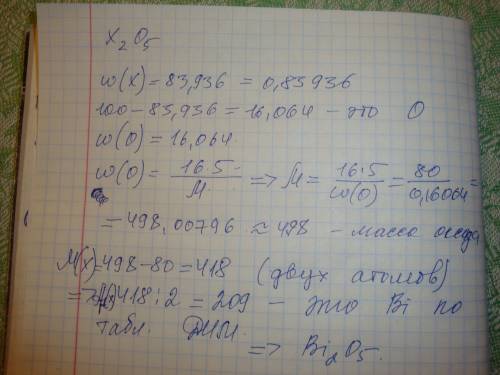 X₂O₅
w(X) = 83,936 = 0,83936
100 - 83,936 = 16,064 - это O
w(O) = 16,064
w(O) = 16·5/M => M = 16·5/w(O) = 80/0,16064 =
= 498,00796 ≈ 498 - масса оксида
M(X) = 498 - 80 = 418 (двух атомов)
=> 418 : 2 = 209 - это Bi по
табл. ДИМ.
=> Bi₂O₅.